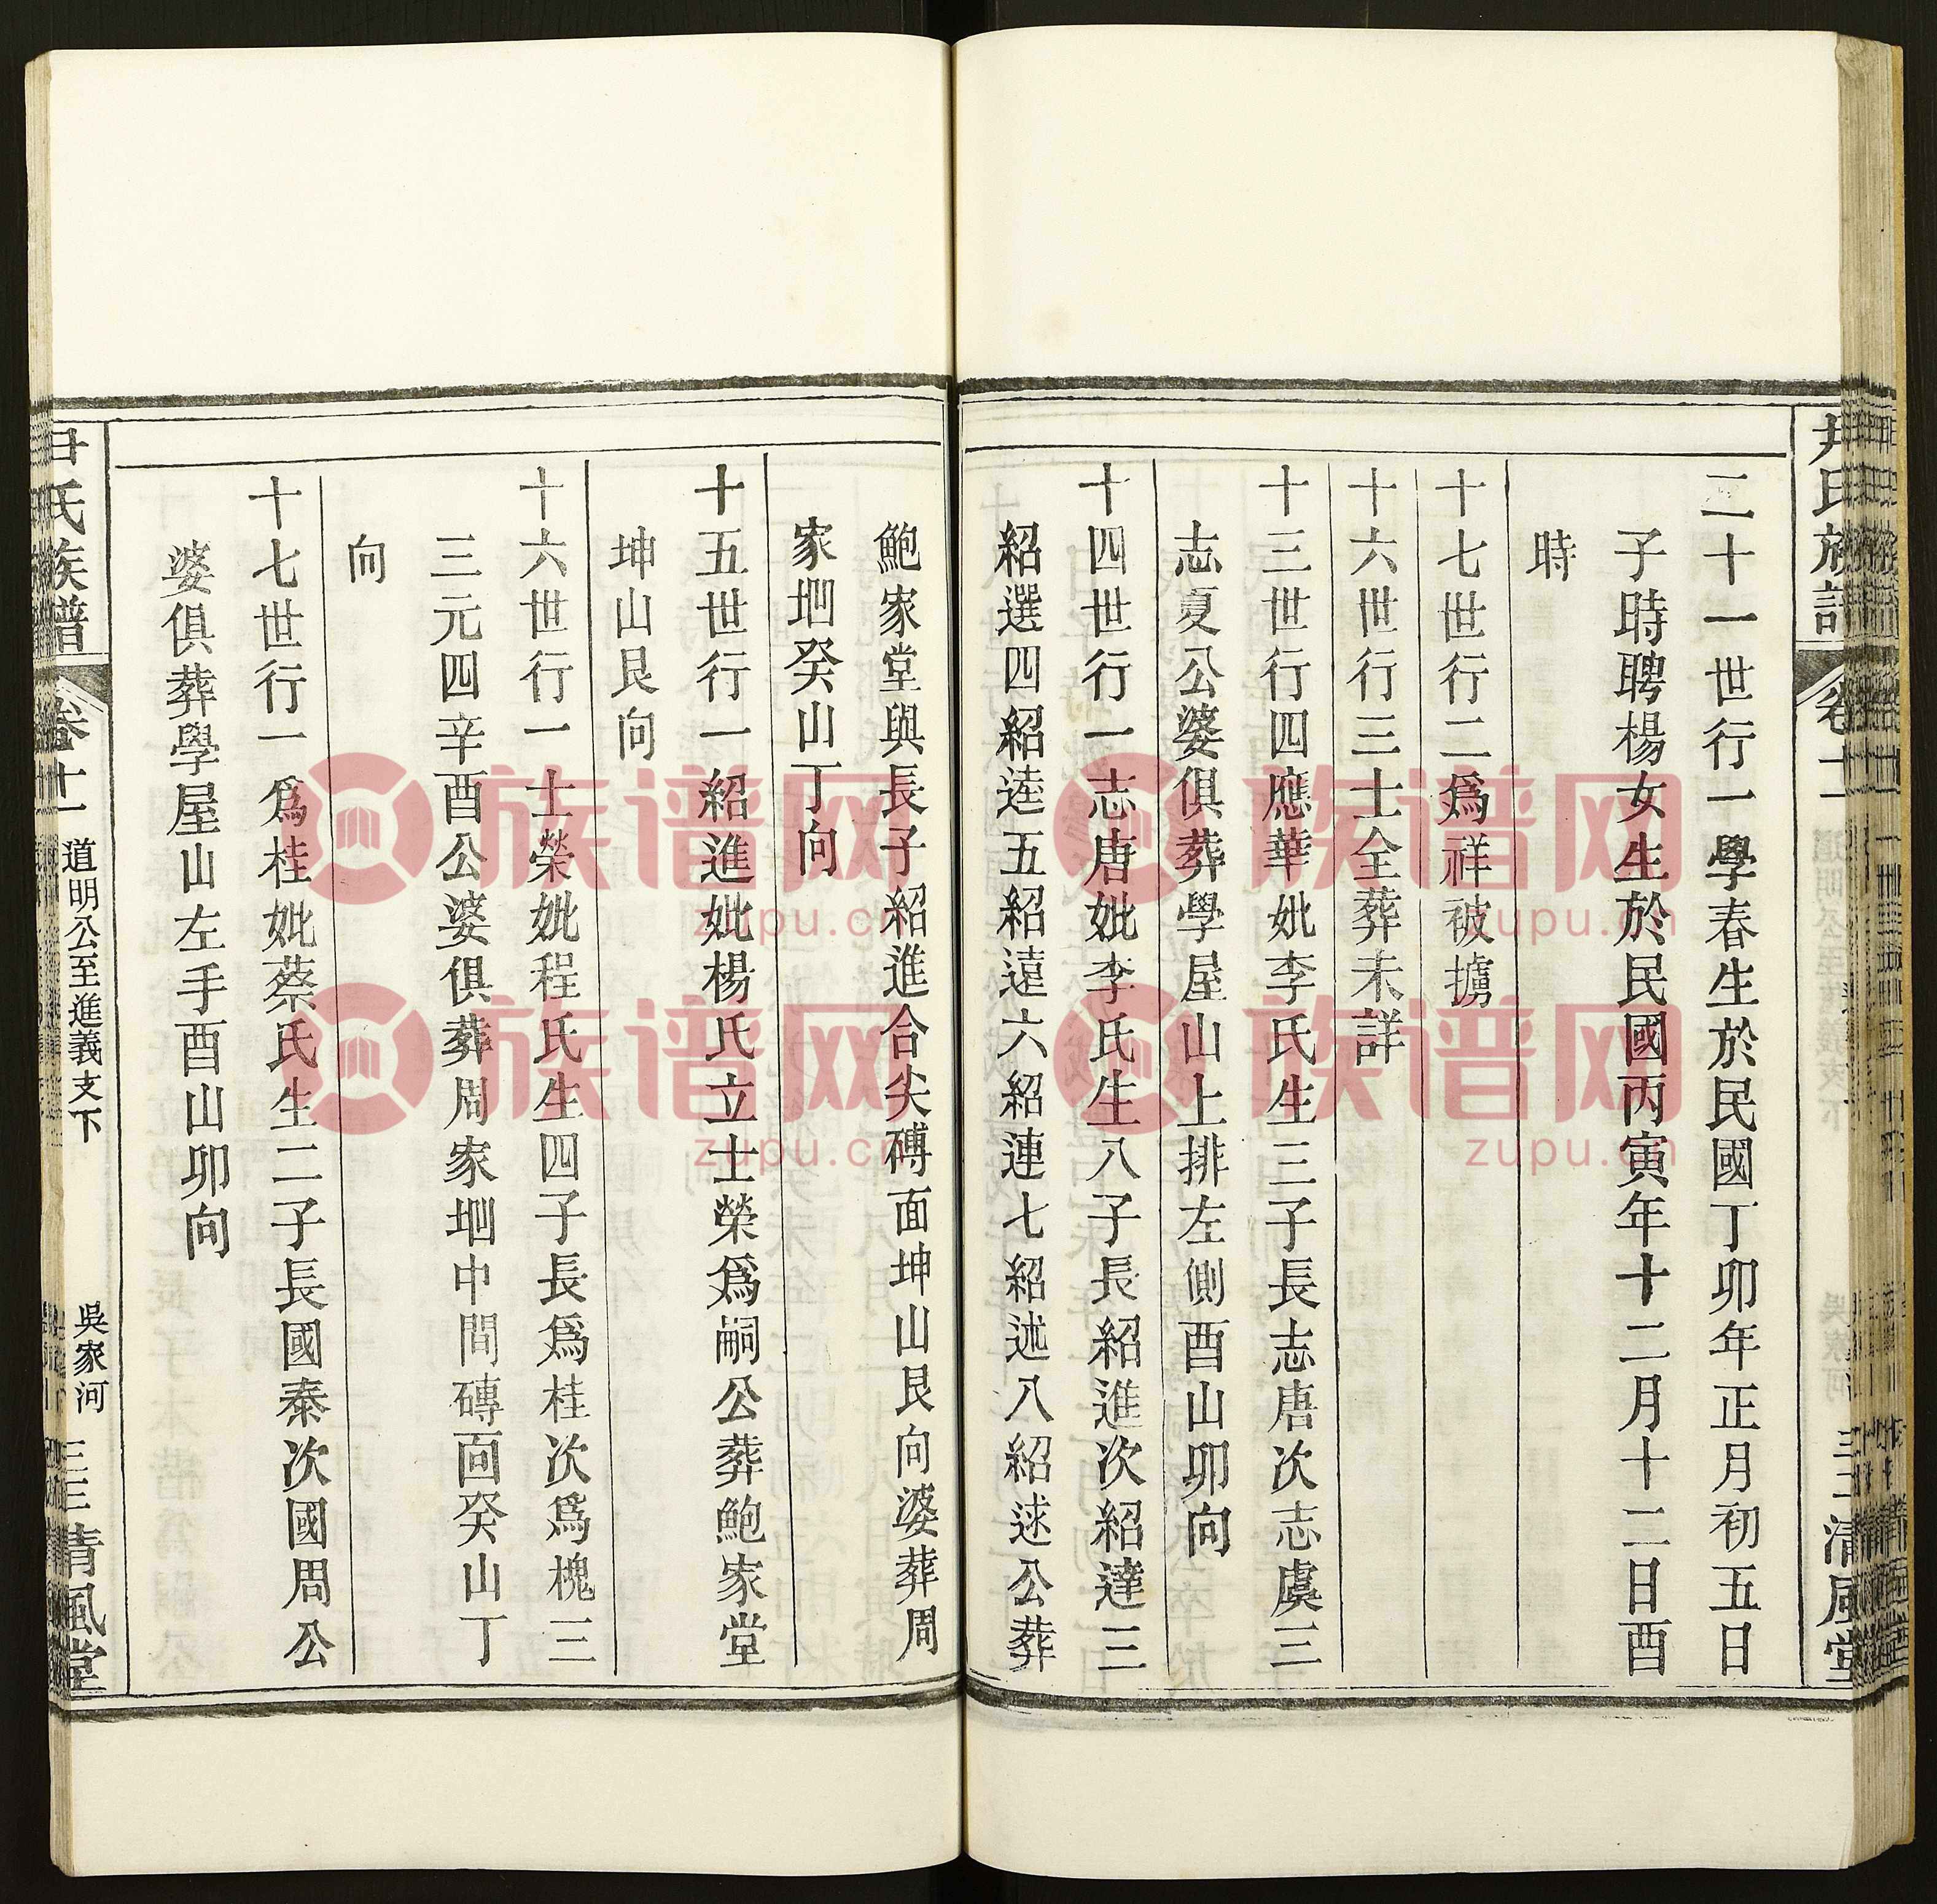 二十一世行一學春生於民國丁卯年正月初五日
子時聘楊女生於民國丙寅年十二月十二日酉
時
十七世行二爲祥被擄
十六世行三士全葬未詳
十三世行四應華妣李氏生三子長志唐次志虞三
志夏公婆俱葬學屋山上排左側酉山卯向
十四世行一志唐妣李氏生八子長紹進次紹達三
紹選四紹逵五紹遠六紹連七紹述八紹逑公葬
鮑家堂與長子紹進合尖磚面坤山艮向婆葬周
家垇癸山丁向
十五世行一紹進妣楊氏立士榮爲嗣公葬鮑家堂
坤山艮向
十六世行一士榮妣程氏生四子長爲桂次爲槐三
三元四辛酉公婆俱葬周家垇中間磚面癸山丁
向
十七世行一爲桂妣蔡氏生二子長國泰次國周公
婆俱葬學屋山左手酉山卯向
尹氏族譜
卷十一
道明公至進義支下
吳家河
三三
清風堂
族谱网
zupu.cn
族谱网
zupu.cn
族谱网
zupu.cn
族谱网
zupu.cn